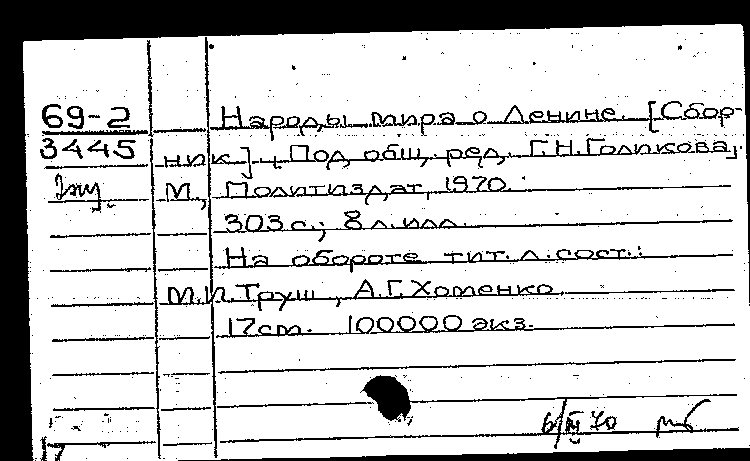 69-2 Народы мира о Ленине. [Сбор-
3445 ник]. Под общ. ред. Г.Н.Голикова.
М., Политиздат, 1970.
303 с.; 8 л. илл.
На обороте тит. л. сост.:
М.И.Труш, А.Г.Хоменко.
17см. 100000 экз.
6/III 70
17